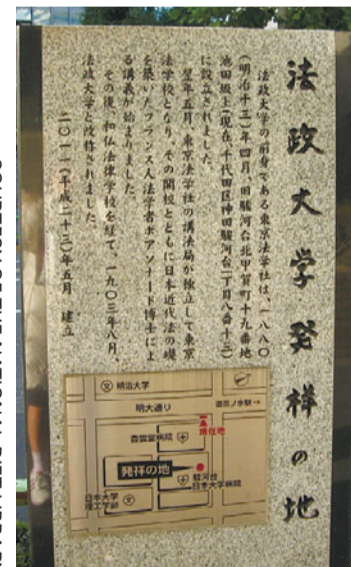 法政大学発祥の地
法政大学の前身である東京法学社は、一八八〇
(明治十三)年四月、田駿河台北甲賀町十九番地
池田坂上(現在、千代田区神田駿河台一丁目八番十三)
に設立されました。
翌年五月、東京法学社の講法局が独立して東京
法学校となり、その開校とともに日本近代法の礎
を築いたフランス人法学者ボアソナード博士によ
る講義が始まりました。
その後、和仏法律学校を経て、一九〇三年八月、
法政大学と改称されました。
二〇一一(平成二十三)年五月 建立
明治大学
明大通り
御茶ノ水駅→
現在地
杏雲堂病院
発祥の地
駿河台
日本大学病院
日本大学
理工学部